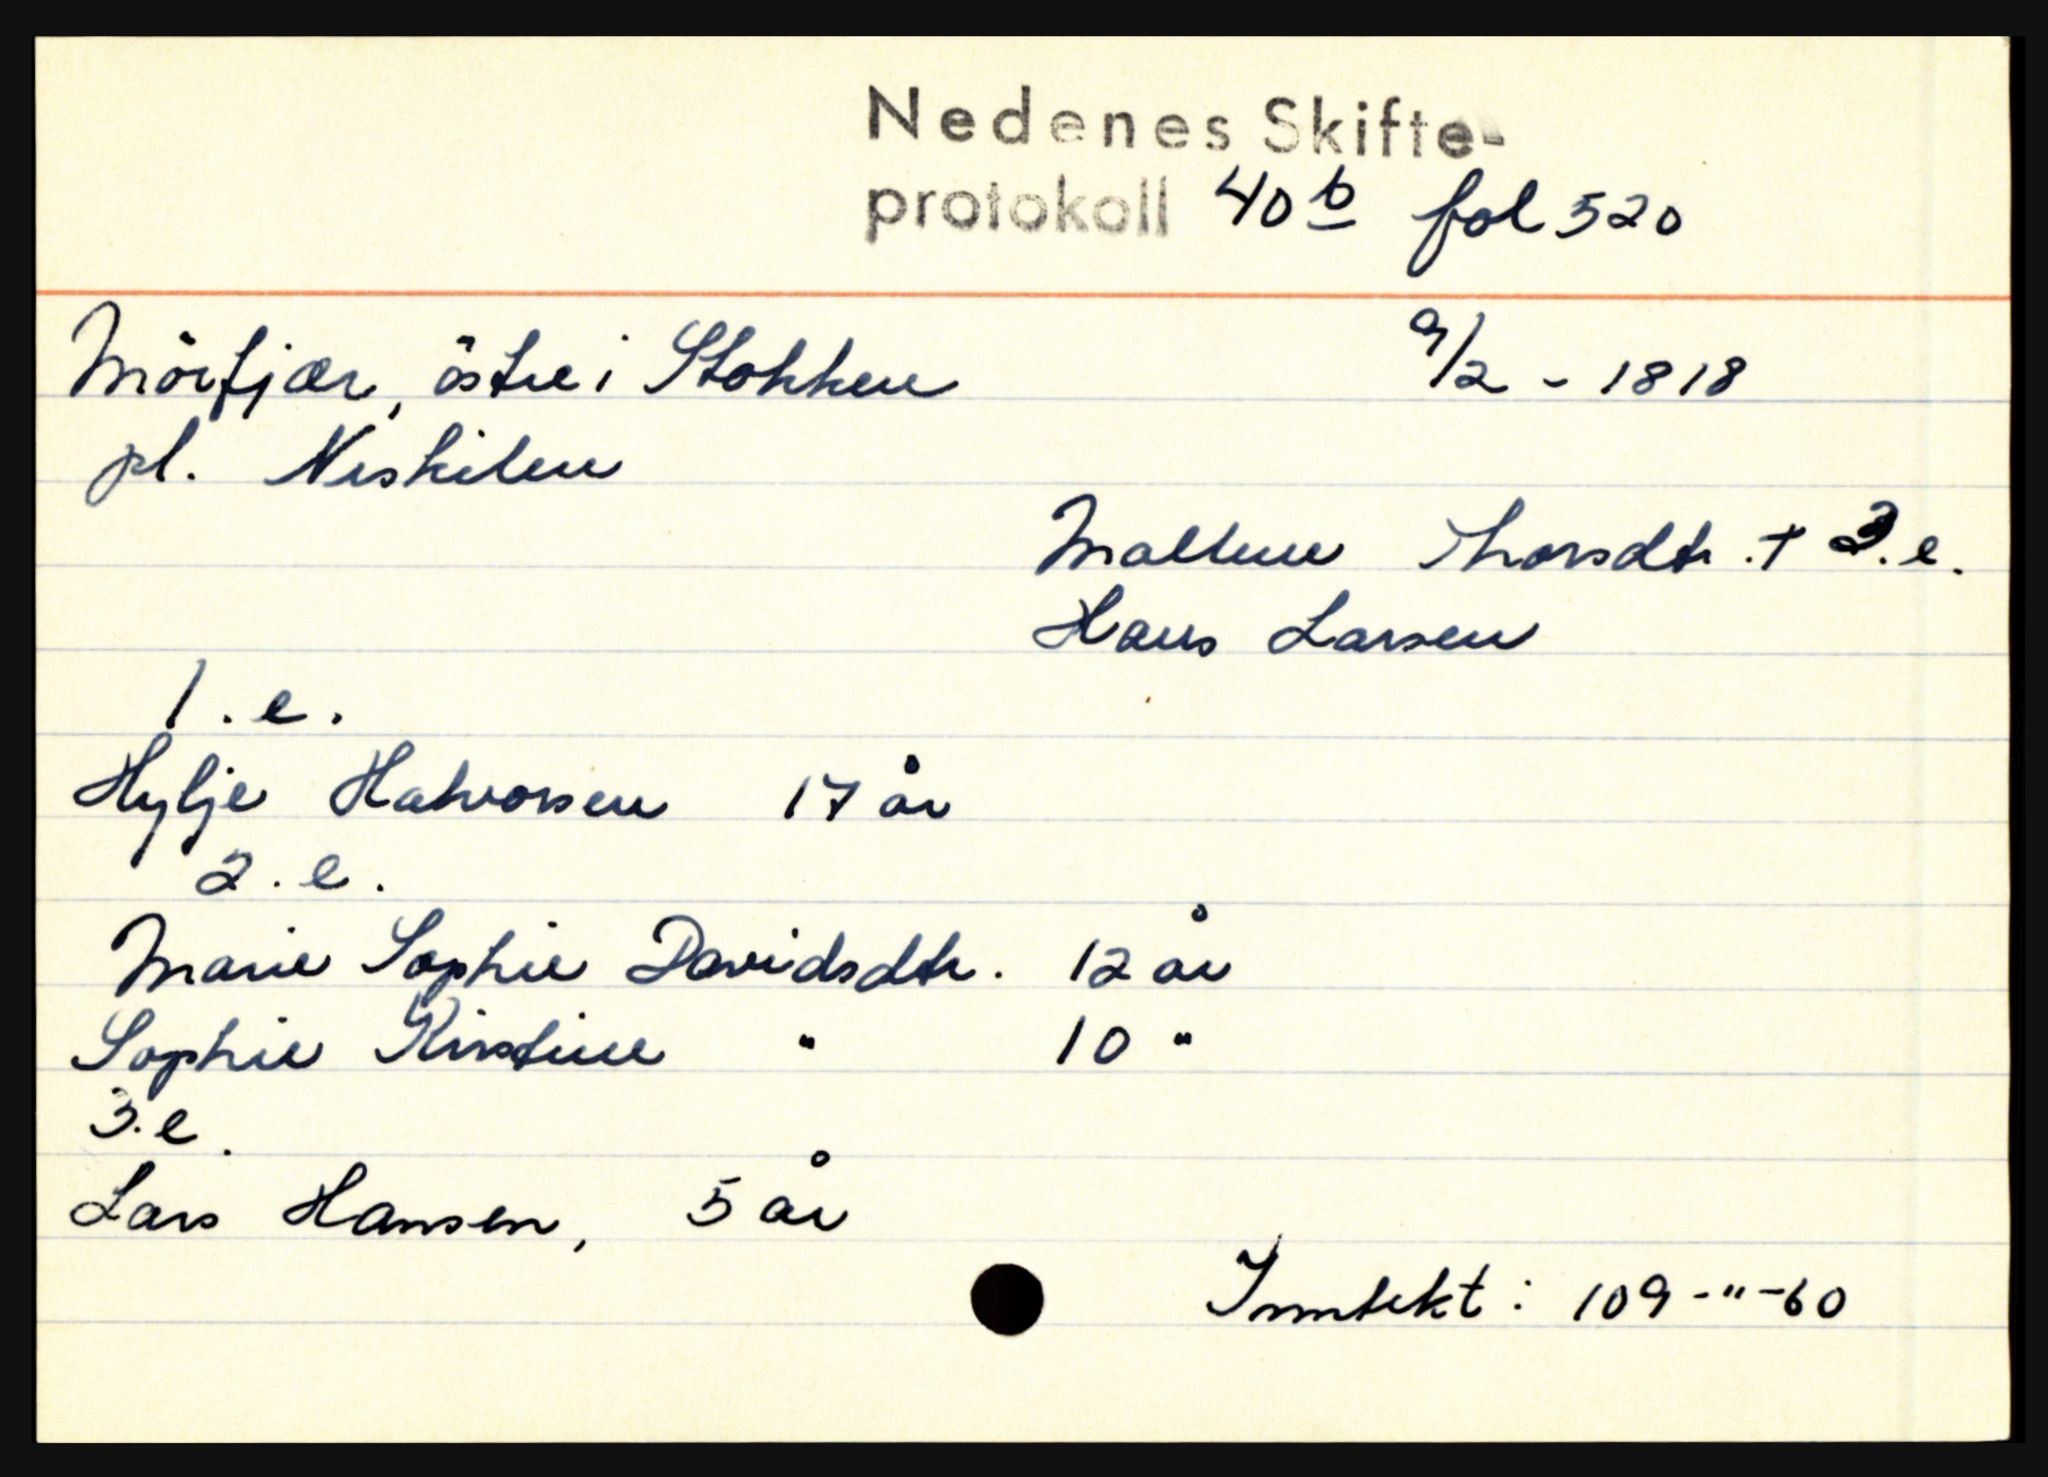 Nedenes Skifte-
protokoll 40 b fol 520
Mörfjær, östre i Stokken 9/2 - 1818
pl. Neskilen
Maltene Thorsdtr. + 3.e.
Hans Larsen
1.e.
Hylje Halvorsen 17 år
2.e.
Marie Sophie Davidsdtr. 12 år
Sophie Kirstine " 10 "
3.e.
Lars Hansen, 5 år
Inntekt: 109-"-60